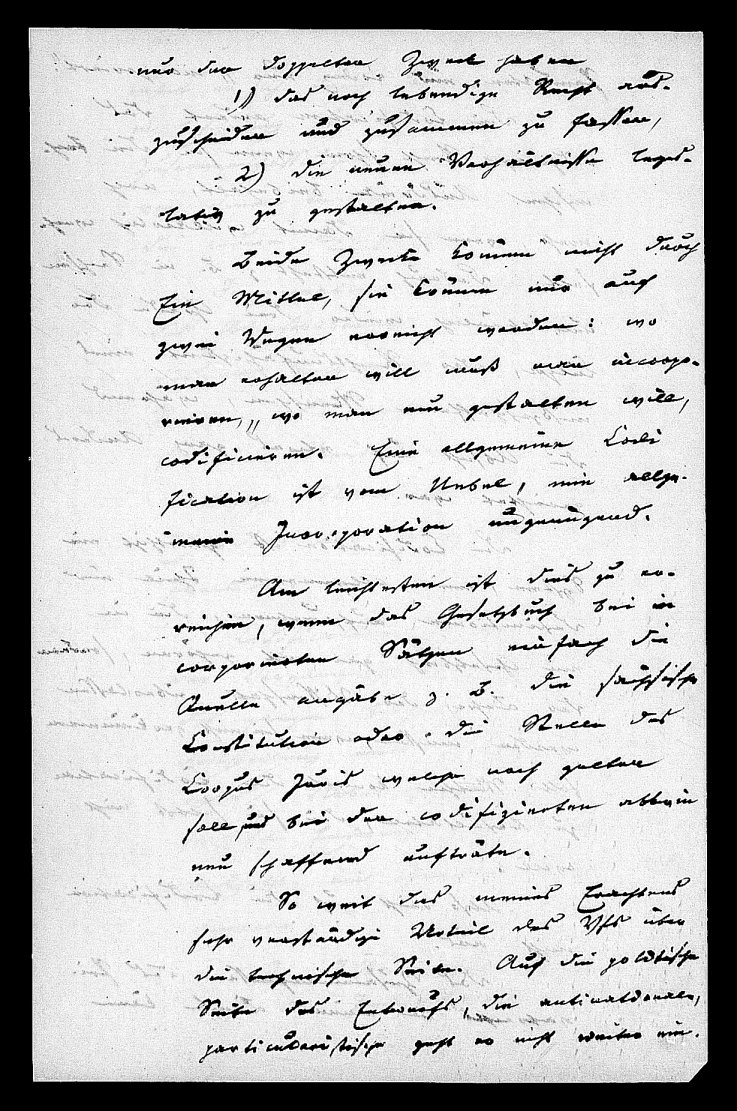 nur den doppelten Zweck haben
1) das noch lebendige Recht aus-
zuscheiden und zusammen zu fassen,
2) die neuen Verhältnisse legis-
lativ zu gestalten.
Beide Zwecke können nicht durch
Ein Mittel, sie können nur auf
zwei Wegen erreicht werden: wo
man erhalten will muß man incorpo-
rieren, wo man neu gestalten will,
codificieren. Eine allgemeine Codi
fication ist vom Uebel, eine allge-
meine Incorporation ungenügend.
Am leichtesten ist dies zu er-
reichen, wenn das Gesetzbuch bei in
corporierten Sätzen einfach die
Quelle angäbe z. B. die sächsische
Constitution oder die Stelle des
Corpus Juris welche noch gelten
soll, und bei den codifizierten allein
neu schaffend aufträte.
So weit das meines Erachtens
sehr verständige Urteil des Vfs über
die technische Seite. Auf die politische
Seite des Entwurfs, die antinationale,
particularistische geht er nicht weiter ein.